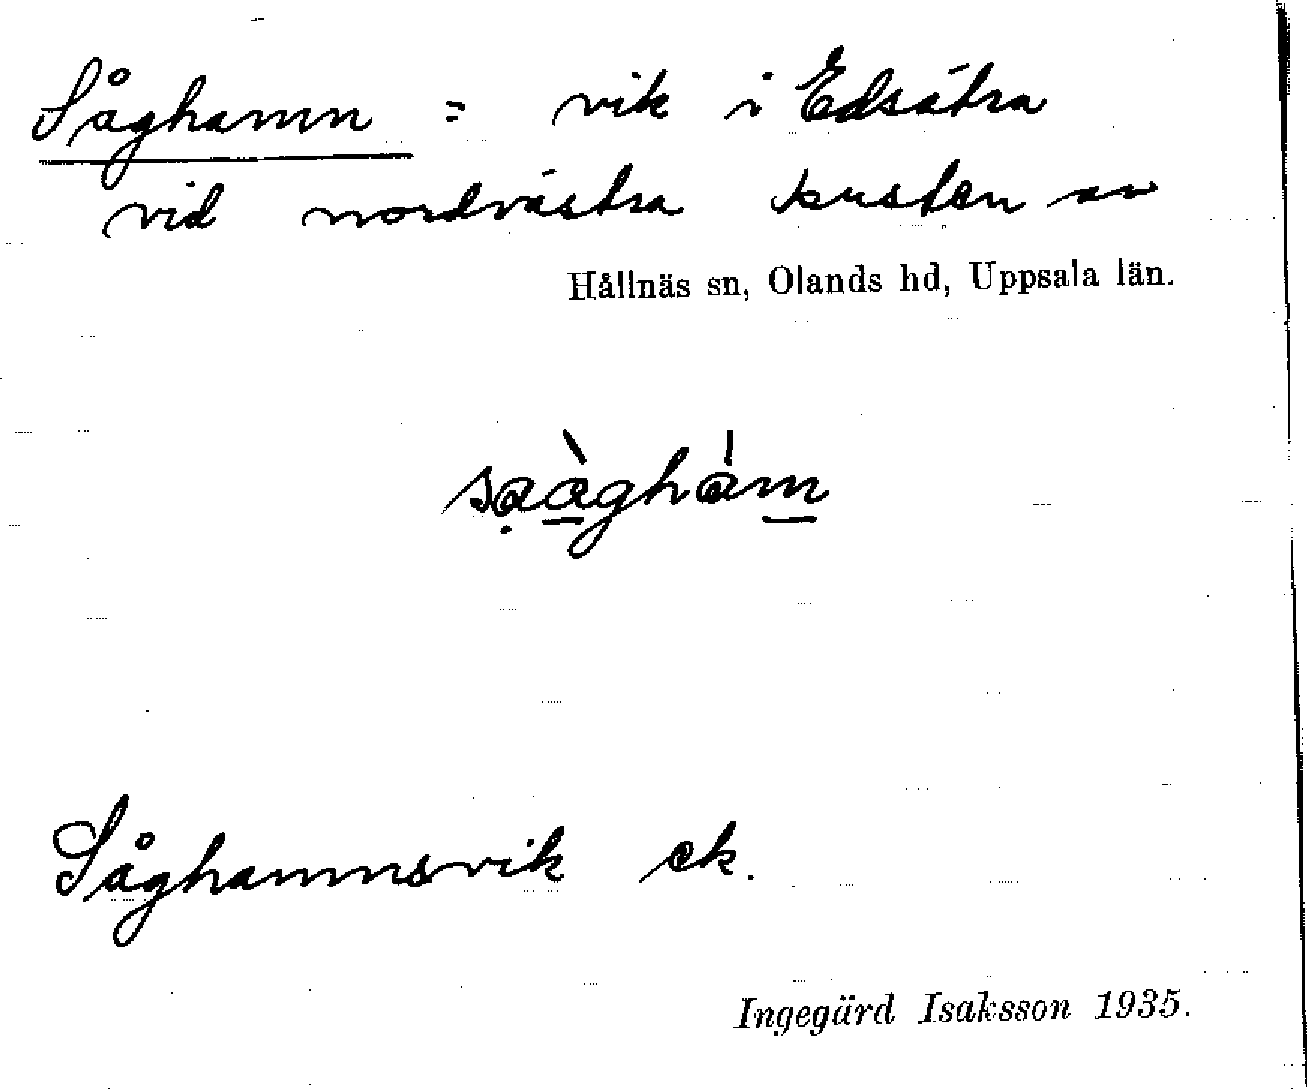 Såghamn = vik i Edsätra
vid nordvästra kusten av
Hållnäs sn, Olands hd, Uppsala län.
sạà̱ghàm̱
Såghamnsvik ek.
Ingegärd Isaksson 1935.